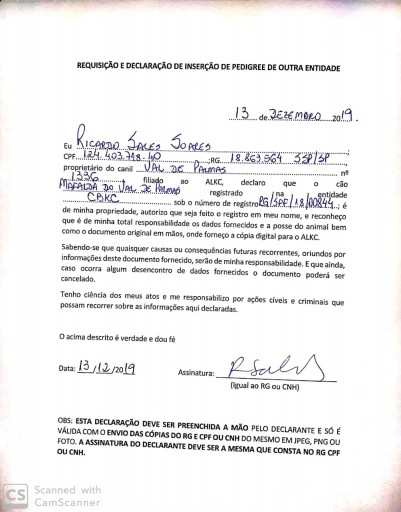 REQUISIÇÃO E DECLARAÇÃO DE INSERÇÃO DE PEDIGREE DE OUTRA ENTIDADE
13 de DEZEMBRO 2019.
Eu RICARDO SALES SOARES ;
CPF 124.403.798-40 ;RG 18.863.564 SSP/SP ;
proprietário do canil VAL DE PALMAS nº
1336 filiado ao ALKC, declaro que o cão
MAFALDA DO VAL DE PALMAS registrado na entidade
CBKC sob o número de registro RG/SPF/18/00844 ; é
de minha propriedade, autorizo que seja feito o registro em meu nome, e reconheço
que é de minha total responsabilidade os dados fornecidos e a posse do animal bem
como o documento original em mãos, onde forneço a cópia digital para o ALKC.
Sabendo-se que quaisquer causas ou consequências futuras recorrentes, oriundos por
informações deste documento fornecido, serão de minha responsabilidade. E que ainda,
caso ocorra algum desencontro de dados fornecidos o documento poderá ser
cancelado.
Tenho ciência dos meus atos e me responsabilizo por ações cíveis e criminais que
possam recorrer sobre as informações aqui declaradas.
O acima descrito é verdade e dou fé
Data: 13/12/2019 Assinatura:
(Igual ao RG ou CNH)
OBS: ESTA DECLARAÇÃO DEVE SER PREENCHIDA A MÃO PELO DECLARANTE E SÓ É
VÁLIDA COM O ENVIO DAS CÓPIAS DO RG E CPF OU CNH DO MESMO EM JPEG, PNG OU
FOTO. A ASSINATURA DO DECLARANTE DEVE SER A MESMA QUE CONSTA NO RG CPF
OU CNH.
CS Scanned with
CamScanner